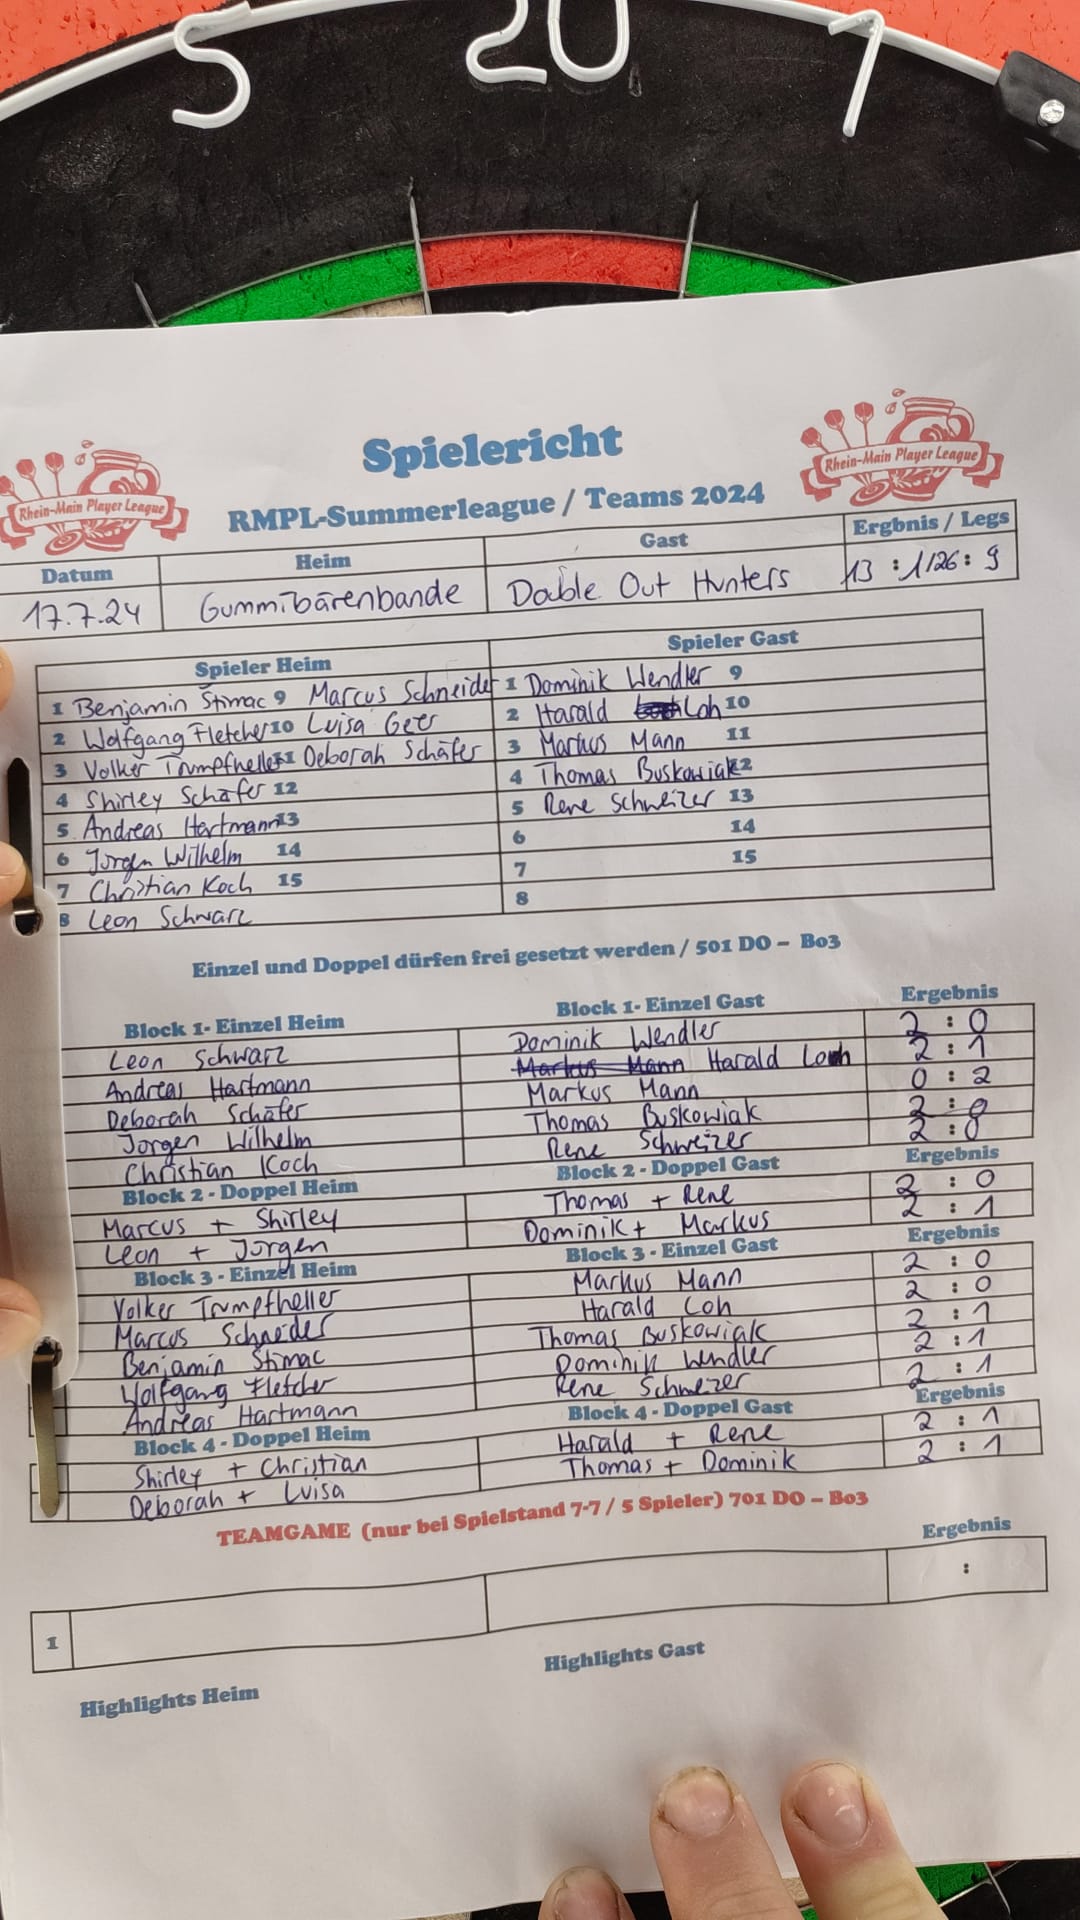 5 20 1
Spielericht
Rhein-Main Player League
Rhein-Main Player League
RMPL-Summerleague / Teams 2024
Datum Heim Gast Ergbnis / Legs
17.7.24 Gummibärenbande Double Out Hunters 13 : 1/26 : 9
Spieler Heim Spieler Gast
1 Benjamin Štimac 9 Marcus Schneider 1 Dominik Wendler 9
2 Wolfgang Fletcher 10 Luisa Geer 2 Harald Loh 10
3 Volker Trumpfheller 11 Deborah Schäfer 3 Markus Mann 11
4 Shirley Schäfer 12 4 Thomas Buskowiak 12
5 Andreas Hartmann 13 5 Rene Schweizer 13
6 Jürgen Wilhelm 14 6 14
7 Christian Koch 15 7 15
8 Leon Schwarz 8
Einzel und Doppel dürfen frei gesetzt werden / 501 DO – Bo3
Block 1- Einzel Heim Block 1- Einzel Gast Ergebnis
Leon Schwarz Dominik Wendler 2 : 0
Andreas Hartmann Markus Mann Harald Loh 2 : 1
Deborah Schäfer Markus Mann 0 : 2
Jürgen Wilhelm Thomas Buskowiak 2 : 0
Christian Koch Rene Schweizer 2 : 0
Block 2 - Doppel Heim Block 2 - Doppel Gast Ergebnis
Marcus + Shirley Thomas + Rene 2 : 0
Leon + Jürgen Dominik + Markus 2 : 1
Block 3 - Einzel Heim Block 3 - Einzel Gast Ergebnis
Volker Trumpfheller Markus Mann 2 : 0
Marcus Schneider Harald Loh 2 : 0
Benjamin Štimac Thomas Buskowiak 2 : 1
Wolfgang Fletcher Dominik Wendler 2 : 1
Andreas Hartmann Rene Schweizer 2 : 1
Block 4 - Doppel Heim Block 4 - Doppel Gast Ergebnis
Shirley + Christian Harald + Rene 2 : 1
Deborah + Luisa Thomas + Dominik 2 : 1
TEAMGAME (nur bei Spielstand 7-7 / 5 Spieler) 701 DO – Bo3
Ergebnis
1 :
Highlights Heim Highlights Gast